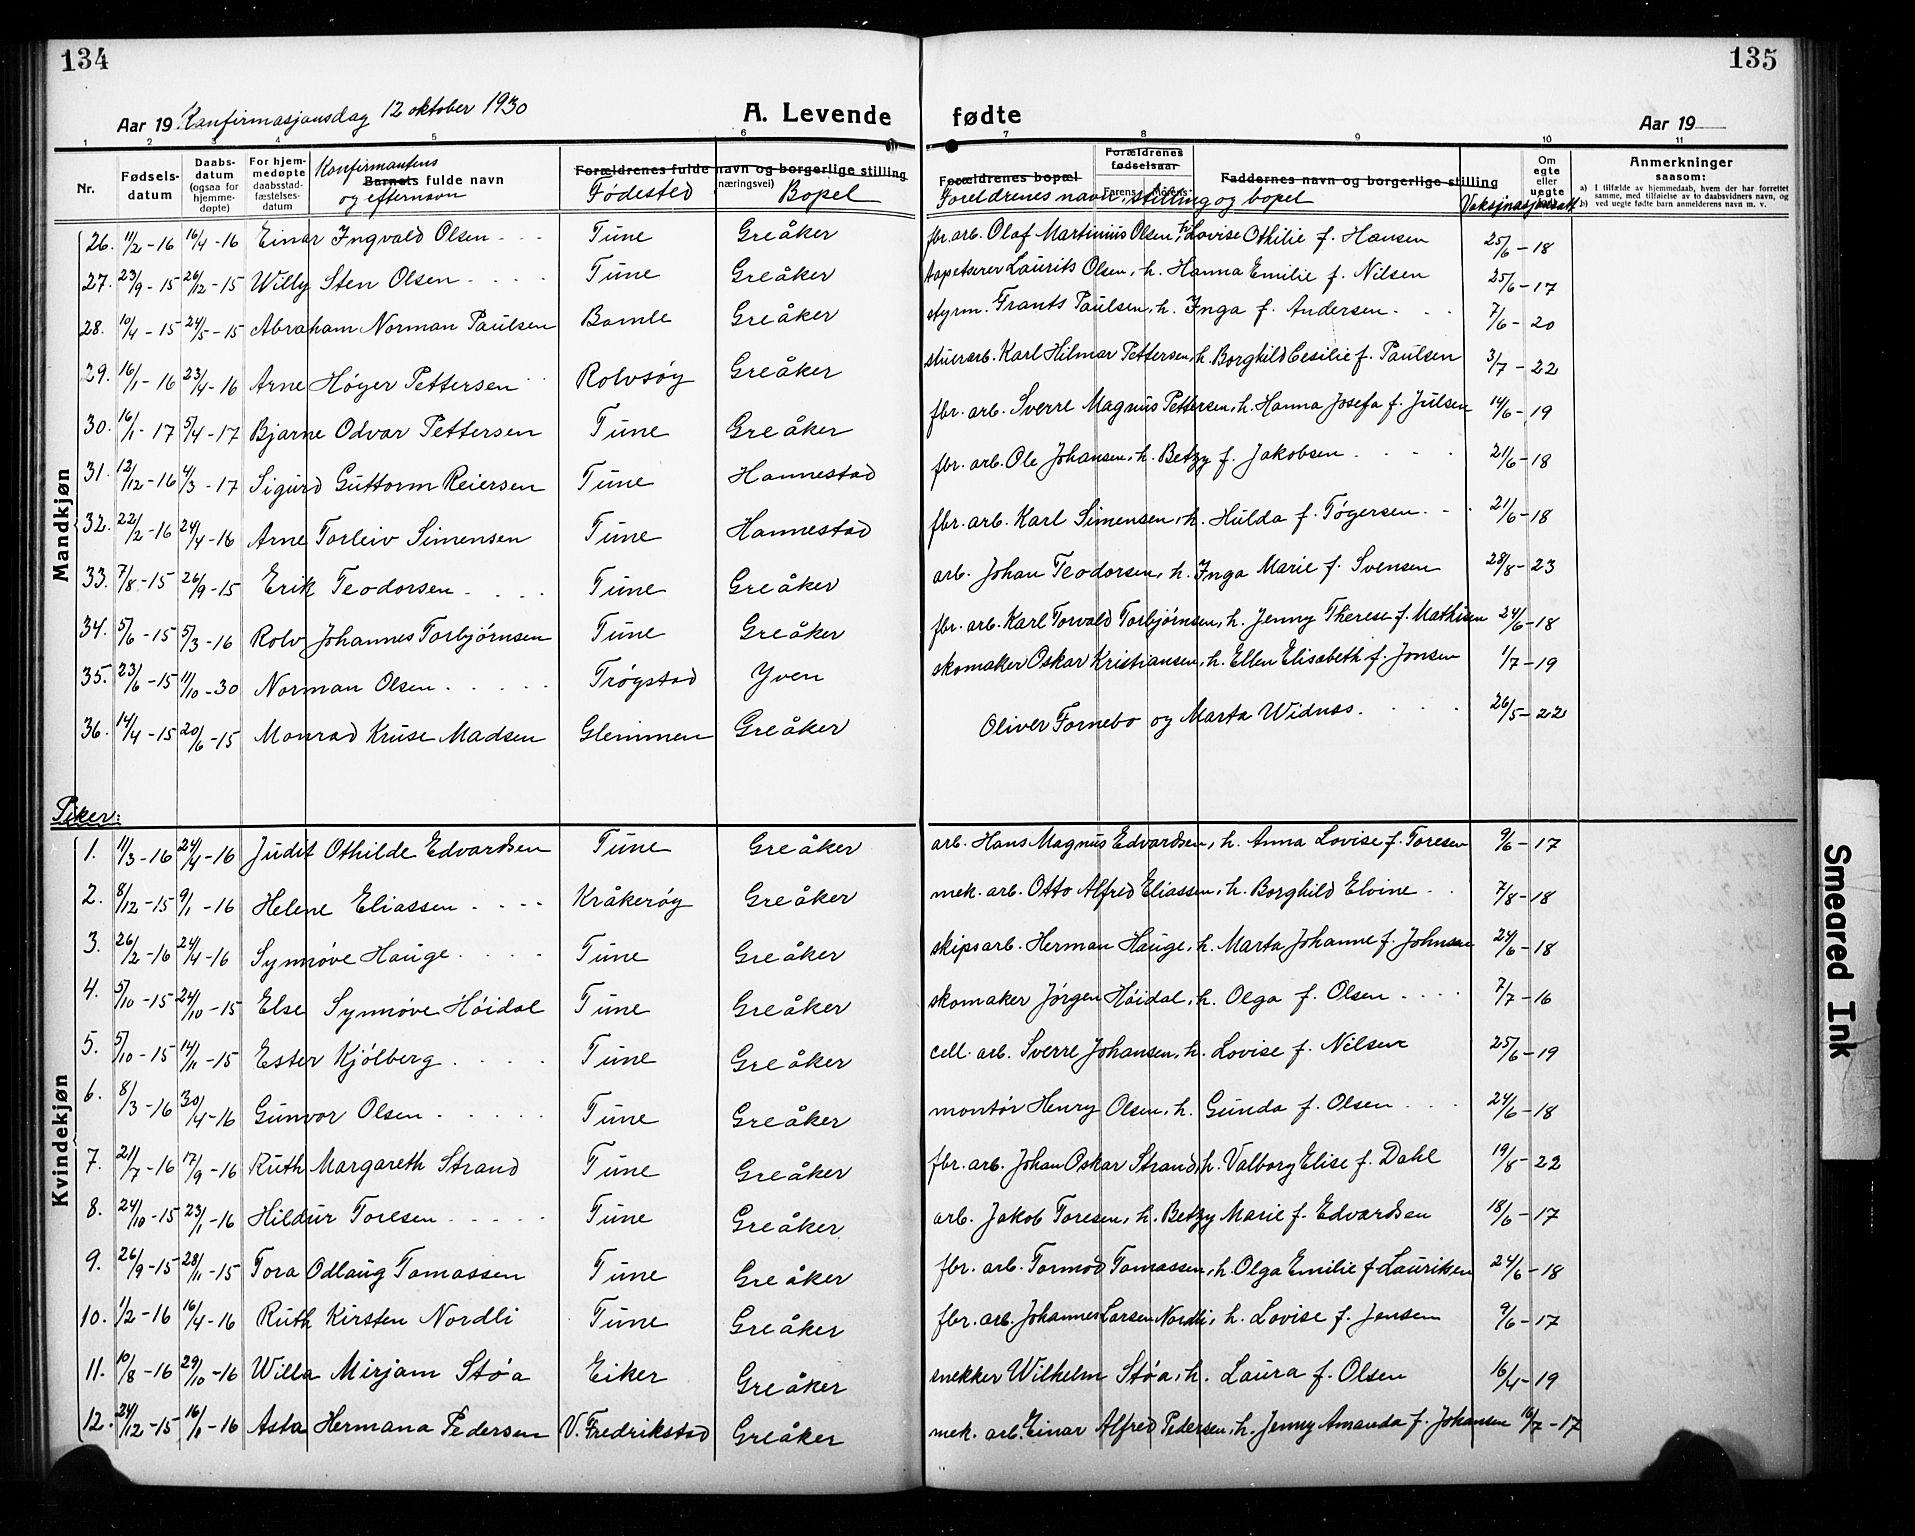 134
135
Aar 19 Konfirmasjonsdag 12 oktober 1930
A. Levende fødte
Aar 19
1 2 3 4 5 6 7 8 9 10 11
Nr.
Fødsels-datum
Daabs-datum (ogsaa for hjemme-døpte)
For hjem-medøpte daabsstad-fæstelses-datum
Konfirmantens
Barnets fulde navn
og efternavn
Forældrenes fulde navn og borgerlige stilling
(næringsvei)
Fødested
Bopel
Forældrenes bopæl
Forældrenes fødselsaar
Farens Morens
Faddernes navn og borgerlige stilling
Foreldrenes navn, stilling og bopel
Om egte eller uegte
Vaksjnasjonsatt
Anmerkninger
saasom:
a) I tilfælde av hjemmedaab, hvem der har forrettet samme, med tilføielse av to daabsvidners navn, og
b) ved uegte fødte barn anmelderens navn m. v.
Mandkjøn
26. 11/2-16 16/4-16 Einar Ingvald Olsen Tune Greåker fbr. arb. Olaf Martinius Olsen, h. Lovise Othilie f. Hansen 25/6-18
27. 23/9-15 26/12-15 Willy Sten Olsen Tune Greåker tapetserer Laurits Olsen, h. Hanna Emilie f. Nilsen 25/6-17
28. 10/4-15 24/5-15 Abraham Norman Paulsen Bamle Greåker styrm. Frants Paulsen, h. Inga f. Andersen 7/6-20
29. 16/1-16 23/4-16 Arne Höyer Pettersen Rolvsöy Greåker stuerarb. Karl Hilmar Pettersen, h. Borghild Cesilie f. Paulsen 3/7-22
30. 16/1-17 5/4-17 Bjarne Odvar Pettersen Tune Greåker fbr. arb. Sverre Magnus Pettersen, h. Hanna Josefa f. Julsen 14/6-19
31. 12/12-16 4/3-17 Sigurd Guttorm Reiersen Tune Hannestad fbr. arb. Ole Johansen, h. Betzy f. Jakobsen 21/6-18
32. 22/2-16 24/4-16 Arne Torleiv Simensen Tune Hannestad fbr. arb. Karl Simensen, h. Hulda f. Tögersen 21/6-18
33. 7/8-15 26/9-15 Erik Teodorsen Tune Greåker arb. Johan Teodorsen, h. Inga Marie f. Svensen 28/8-23
34. 5/6-15 5/3-16 Rolv Johannes Torbjörnsen Tune Greåker fbr. arb. Karl Torvald Torbjörnsen, h. Jenny Therese f. Mathisen 24/6-18
35. 23/6-15 11/10-30 Norman Olsen Trögstad Yven skomaker Oskar Kristiansen, h. Ellen Elisabeth f. Jonsen 1/7-19
36. 14/4-15 20/6-15 Monrad Kruse Madsen Glemmen Greåker Oliver Fornebo og Marta Widnes 26/5-22
Piker:
Kvindekjøn
1. 11/3-16 24/4-16 Judit Othilde Edvardsen Tune Greåker arb. Hans Magnus Edvardsen, h. Anna Lovise f. Toresen 9/6-17
2. 8/12-15 9/1-16 Helene Eliassen Kråkeröy Greåker mek. arb. Otto Alfred Eliassen, h. Borghild Elvine 7/8-18
3. 26/2-16 24/4-16 Synnöve Hauge Tune Greåker skipsarb. Herman Hauge, h. Marta Johanne f. Johnsen 24/6-18
4. 5/10-15 24/10-15 Else Synnöve Höidal Tune Greåker skomaker Jörgen Höidal, h. Olga f. Olsen 7/7-16
5. 5/10-15 14/11-15 Ester Kjölberg Tune Greåker cell. arb. Sverre Johansen, h. Lovise f. Nilsen 25/6-19
6. 8/3-16 30/4-16 Gunvor Olsen Tune Greåker montör Henry Olsen, h. Gunda f. Olsen 24/6-18
7. 21/7-16 17/9-16 Ruth Margareth Strand Tune Greåker fbr. arb. Johan Oskar Strand, h. Valborg Elise f. Dahl 19/8-22
8. 24/10-15 23/1-16 Hildur Toresen Tune Greåker arb. Jakob Toresen, h. Betzy Marie f. Edvardsen 18/6-17
9. 26/9-15 28/11-15 Tora Odlaug Tomassen Tune Greåker fbr. arb. Tormod Tomassen, h. Olga Emilie f. Lauriksen 24/6-18
10. 1/2-16 16/4-16 Ruth Kirsten Nordli Tune Greåker fbr. arb. Johannes Larsen Nordli, h. Lovise f. Jensen 9/6-17
11. 10/8-16 29/10-16 Willa Mirjam Stöa Eiker Greåker snekker Wilhelm Stöa, h. Laura f. Olsen 16/4-19
12. 24/12-15 16/1-16 Asta Hermana Pedersen V. Fredrikstad Greåker mek. arb. Einar Alfred Pedersen, h. Jenny Amanda f. Johansen 16/7-17
Smeared Ink